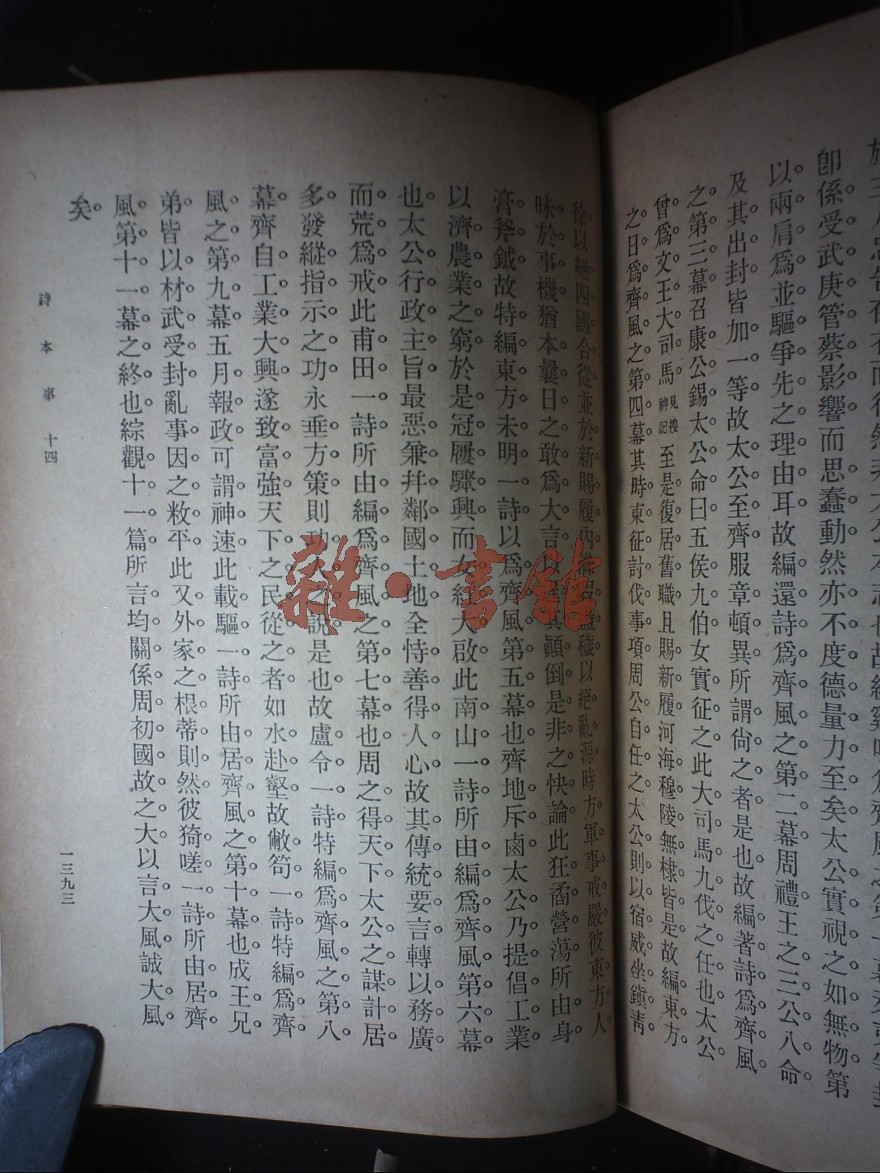 即係受武庚管蔡影響而思蠢動然亦不度德量力至矣太公實視之如無物第
以兩肩爲並驅爭先之理由耳故編還詩爲齊風之第二幕周禮王之三公八命
及其出封皆加一等故太公至齊服章頓異所謂尙之者是也故編著詩爲齊風
之第三幕召康公錫太公命曰五侯九伯女實征之此大司馬九伐之任也太公
曾爲文王大司馬見搜神記至是復居舊職且賜新履河海穆陵無棣皆是故編東方
之日爲齊風之第四幕其時東征討伐事項周公自任之太公則以宿威坐鎭靑
徐以絕四國合從並於新賜履內 穢以絕亂源時方軍事戒嚴彼東方人
昧於事機猶本曩日之敢爲大言以 其顚倒是非之快論此狂矞營蕩所由身
膏斧鉞故特編東方未明一詩以爲齊風第五幕也齊地斥鹵太公乃提倡工業
以濟農業之窮於是冠屨驟興而女紅大啟此南山一詩所由編爲齊風第六幕
也太公行政主旨最惡兼幷鄰國土地全恃善得人心故其傳統要言轉以務廣
而荒爲戒此甫田一詩所由編爲齊風之第七幕也周之得天下太公之謀計居
多發縱指示之功永垂方策則功人之說是也故盧令一詩特編爲齊風之第八
幕齊自工業大興遂致富強天下之民從之者如水赴壑故敝笱一詩特編爲齊
風之第九幕五月報政可謂神速此載驅一詩所由居齊風之第十幕也成王兄
弟皆以材武受封亂事因之敉平此又外家之根蒂則然彼猗嗟一詩所由居齊
風第十一幕之終也綜觀十一篇所言均關係周初國故之大以言大風誠大風
矣
詩本事 十四
一三九三
雜·書館